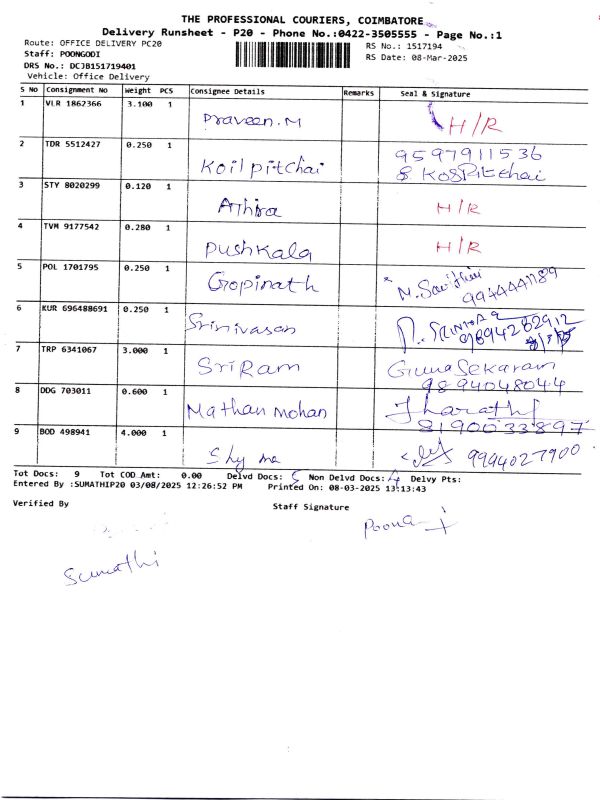 THE PROFESSIONAL COURIERS, COIMBATORE
Delivery Runsheet - P20 - Phone No.:0422-3505555 - Page No.:1
Route: OFFICE DELIVERY PC20 RS No.: 1517194
Staff: POONGODI RS Date: 08-Mar-2025
DRS No.: DCJB151719401
Vehicle: Office Delivery
S No Consignment No Weight PCS Consignee Details Remarks Seal & Signature
1 VLR 1862366 3.100 1 Praveen.M H/R
2 TDR 5512427 0.250 1 Koilpitchai 9597911536
3 STY 8020299 0.120 1 Athira H/R
4 TVM 9177542 0.280 1 Pushkala H/R
5 POL 1701795 0.250 1 Gopinath 9944441189
6 KUR 696488691 0.250 1 Srinivasan 9894282912
7 TRP 6341067 3.000 1 SriRam GunaSekaram
9894048044
8 DDG 703011 0.600 1 Mathan mohan Jharathi
8190033897
9 BOD 498941 4.000 1 Shyma 9994027900
Tot Docs: 9 Tot COD Amt: 0.00 Delvd Docs: 5 Non Delvd Docs: 4 Delvy Pts:
Entered By :SUMATHIP20 03/08/2025 12:26:52 PM Printed On: 08-03-2025 13:13:43
Verified By Staff Signature
Poona
Sumathi